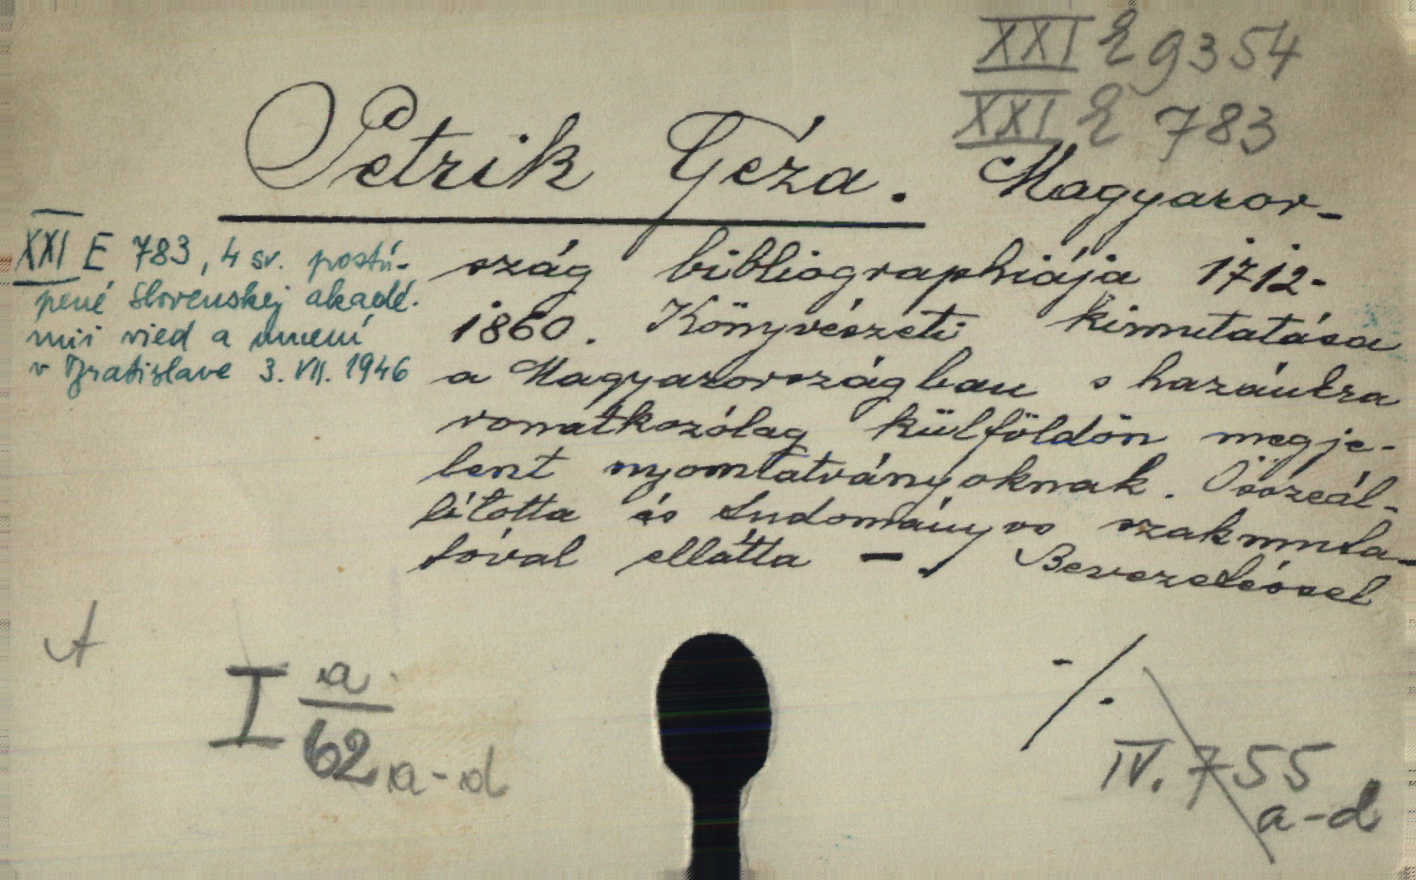 XXI E 9354
XXI E 783
Petrik Géza. Magyaror-
szág bibliographiája 1712-
1860. Könyvészeti kimutatása
a Magyarországban s hazánkra
vonatkozólag külföldön megje-
lent nyomtatványoknak. Összeál-
lította és tudományos szakmuta-
tóval ellátta —. Bevezetéssel
XXI E 783, 4 sv. postú-
pené Slovenskej akadé-
mii vied a umení
v Bratislave 3. VII. 1946
A
I a/62 a-d
·/.
IV. 755
a-d